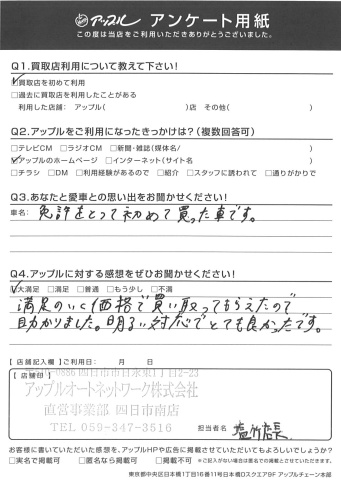 アップル アンケート用紙
この度は当店をご利用いただきありがとうございました。
Q1.買取店利用について教えて下さい!
☑買取店を初めて利用
□過去に買取店を利用したことがある
利用した店舗: アップル( )店 その他( )
Q2.アップルをご利用になったきっかけは?(複数回答可)
□テレビCM □ラジオCM □新聞・雑誌(媒体名/ )
☑アップルのホームページ □インターネット(サイト名 )
□チラシ □DM □利用経験があるので □紹介 □スタッフに誘われて □通りがかりで
Q3.あなたと愛車との思い出をお聞かせください!
車名: 免許をとって初めて買った車です。
Q4.アップルに対する感想をぜひお聞かせください!
☑大満足 □満足 □普通 □もう少し □不満
満足のいく価格で買い取ってもらえたので
助かりました。明るい対応でとても良かったです。
【店舗記入欄】ご利用日: 月 日
【店舗印】
-0886四日市市日永東1丁目2-23
アップルオートネットワーク株式会社
直営事業部 四日市南店
TEL 059-347-3516
担当者名 塩竹店長
お客様に書いていただいた感想を、アップルHPや広告に掲載させていただいてもよろしいでしょうか?
□実名で掲載可 □匿名なら掲載可 □掲載不可 ※ご記入がない場合は匿名での掲載とさせていただきます。
東京都中央区日本橋1丁目16番11号日本橋Dスクエア9F アップルチェーン本部